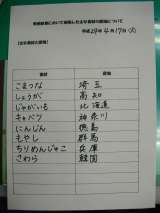 学校給食において使用した主な食材の産地について
平成24年4月17日(火)
【主な食材の産地】
食材 産地
こまつな 埼玉
しょうが 高知
じゃがいも 北海道
キャベツ 神奈川
にんじん 徳島
もやし 群馬
ちりめんじゃこ 兵庫
さわら 韓国